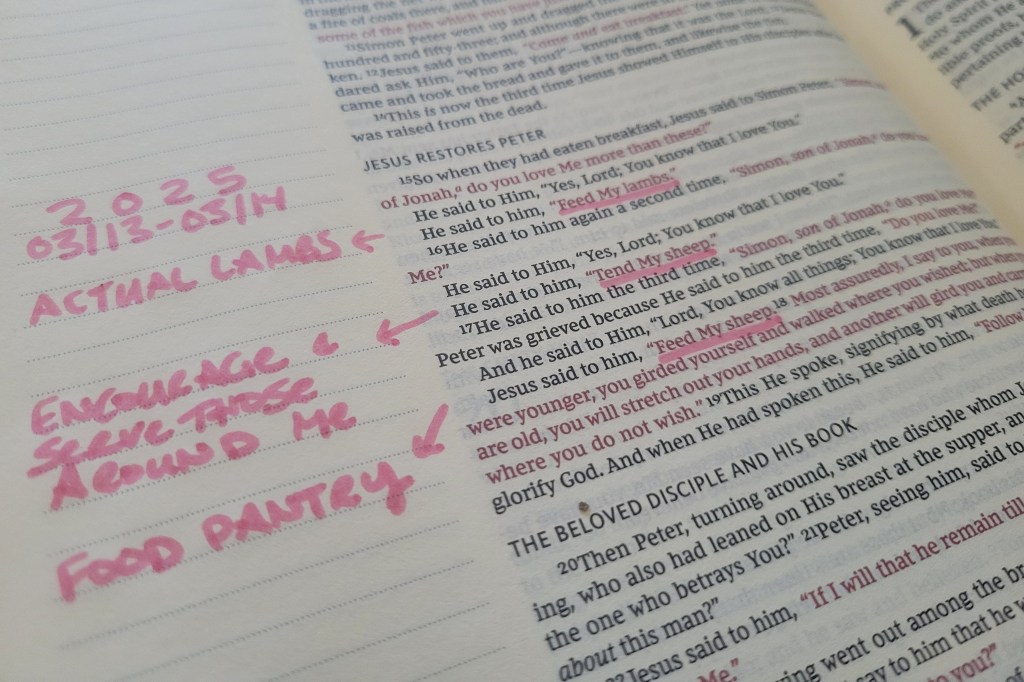 2025
03/13-03/14
ACTUAL LAMBS ←
ENCOURAGE & ←
SERVE THOSE
AROUND ME
FOOD PANTRY ↙
dragging the net
a fire of coals there, and
some of the fish which you have
11Simon Peter went up and dragged the
hundred and fifty-three; and although there were
ken. 12Jesus said to them, "Come and eat breakfast."
dared ask Him, "Who are You?"—knowing that it was the Lord.
came and took the bread and gave it to them, and likewise the
14This is now the third time Jesus showed Himself to His disciples
was raised from the dead.
JESUS RESTORES PETER
15So when they had eaten breakfast, Jesus said to Simon Peter,
of Jonah,a do you love Me more than these?"
He said to Him, "Yes, Lord; You know that I love You."
He said to him, "Feed My lambs."
16He said to him again a second time, "Simon, son of Jonah,a do you
Me?"
He said to Him, "Yes, Lord; You know that I love You."
He said to him, "Tend My sheep."
17He said to him the third time, "Simon, son of Jonah,a do you love
Peter was grieved because He said to him the third time, "Do you love
And he said to Him, "Lord, You know all things; You know that I love
Jesus said to him, "Feed My sheep. 18 Most assuredly, I say to you, when you
were younger, you girded yourself and walked where you wished; but when
are old, you will stretch out your hands, and another will gird you and
where you do not wish." 19This He spoke, signifying by what death
glorify God. And when He had spoken this, He said to him, "Follow
THE BELOVED DISCIPLE AND HIS BOOK
20Then Peter, turning around, saw the disciple whom
ing, who also had leaned on His breast at the supper, and
the one who betrays You?" 21Peter, seeing him, said to
about this man?"
22Jesus said to him, "If I will that he remain till
Me."
ying went out among the
say to him that he
to you?"
of